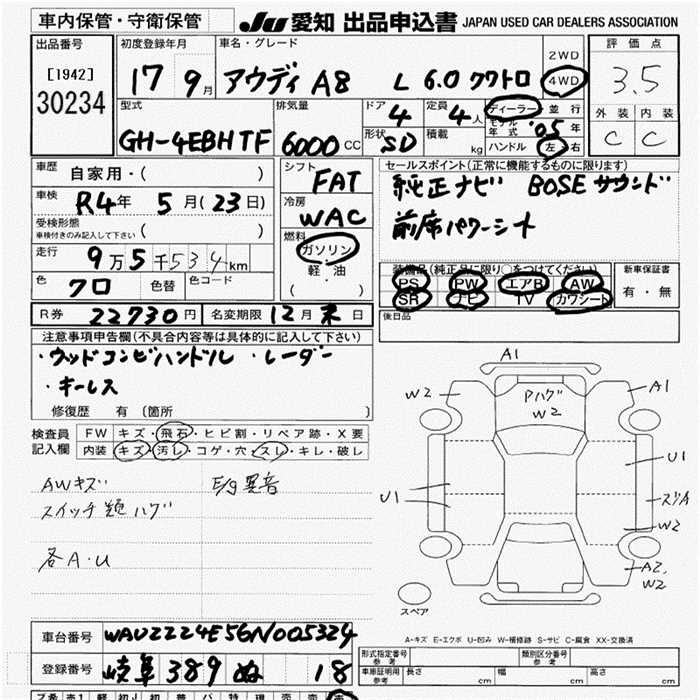 車内保管・守衛保管 JU 愛知 出品申込書 JAPAN USED CAR DEALERS ASSOCIATION
出品番号 [1942] 30234
初度登録年月 17 9月
車名・グレード アウディ A8 L 6.0 クワトロ
2WD 4WD
評価点 3.5
外装 内装
C C
型式 GH-4EBHTF
排気量 6000CC
ドア 4 定員 4人
形状 SD 積載 kg
ディーラー 並行
モデル年式 '05年
ハンドル 左 右
車歴 自家用・( )
車検 R4年 5月(23日)
受検形態 ( )
車検付きのみ記入して下さい
走行 9万5千534km
色 クロ 色替 色コード
シフト FAT
冷房 WAC
燃料 ガソリン
軽・油
( )
セールスポイント(正常に機能するものに限ります)
純正ナビ BOSEサウンド
前席パワーシート
装備品(純正品に限り○をつけてください)
PS PW エアB AW
SR ナビ TV カワシート
新車保証書
有・無
R券 22730円 名変期限 12月末日
後日品
注意事項申告欄(不具合内容等は具体的に記入して下さい)
・ウッドコンビハンドル ・レーダー
・キーレス
修復歴 有 (箇所 )
検査員記入欄
FW キズ・飛石・ヒビ割・リペア跡・X要
内装 キズ・汚レ・コゲ・穴・スレ・キレ・破レ
AWキズ E/g異音
スイッチ類ハゲ
各A・U
A1
W2
Pハゲ
W2
A1
U1
U1
スリA
W2
A2,
W2
スペア
A-キズ E-エクボ U-凹み W-補修跡 S-サビ C-腐食 XX-交換済
車台番号 WAUZZZ4E56N005324
登録番号 岐阜 389 ぬ 18
形式指定番号 参考 類別区分番号 参考
車車証明用 参考 長さ cm 幅 cm 高さ cm